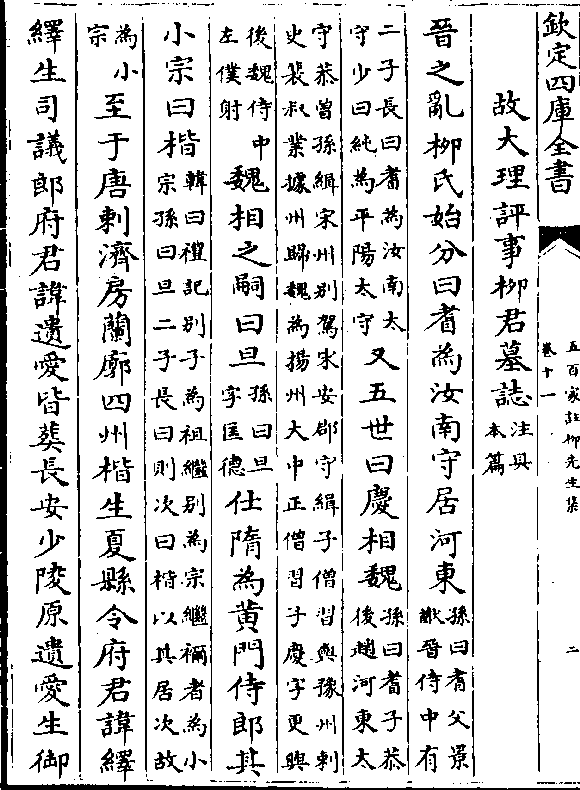 欽定四庫全書
五百家註柳先生集
卷十一
二
故大理評事柳君墓誌注具本篇
晉之亂柳氏始分曰耆為汝南守居河東孫曰耆父景猷晉侍中有
二子長曰耆為汝南太守少曰純為平陽太守又五世曰慶相魏孫曰耆子恭後趙河東太
守恭曾孫緝宋州别駕宋安郡守緝子僧習與豫州刺史裴叔業據州歸魏為揚州大中正僧習子慶字更興
後魏侍中左僕射魏相之嗣曰旦孫曰旦字匡德仕隋為黃門侍郎其
小宗曰楷韓曰禮記别子為祖繼别為宗繼禰者為小宗孫曰旦二子長曰則次曰楷以其居次故
為小宗至于唐刺濟房蘭廓四州楷生夏縣令府君諱繹
繹生司議郎府君諱遺愛皆葬長安少陵原遺愛生御